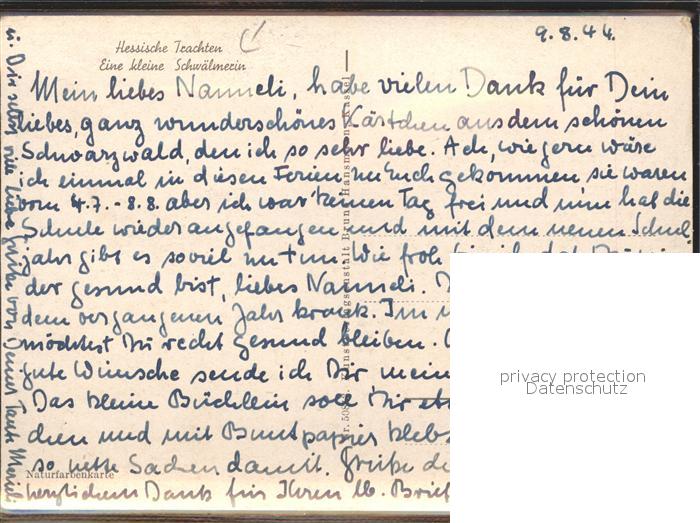 Hessische Trachten
Eine kleine Schwälmerin
9.8.44.
Mein liebes Nanneli, habe vielen Dank für Dein
liebes, ganz wunderschönes Kästchen aus dem schönen
Schwarzwald, den ich so sehr liebe. Ach, wie gern wäre
ich einmal in diesen Ferien zu Euch gekommen, sie waren
vom 4.7. - 8.8. aber ich war keinen Tag frei und nun hat die
Schule wieder angefangen und mit dem neuen Schul
jahr gibt es soviel zu tun. Wie froh bin ich, daß Du
der gesund bist, liebes Nanneli.
dem vergangenen Jahr krank. Im
möchtest Du recht gesund bleiben.
gute Wünsche sende ich Dir, mein
Das kleine Büchlein soll Dir
chen und mit Buntpapier kleb
so nette Sachen damit. Grüße
herzlichem Dank für Ihren lb. Brief
Naturfarbenkarte
u. Dir selbst viele liebe Grüße von Deiner Tante
privacy protection
Datenschutz